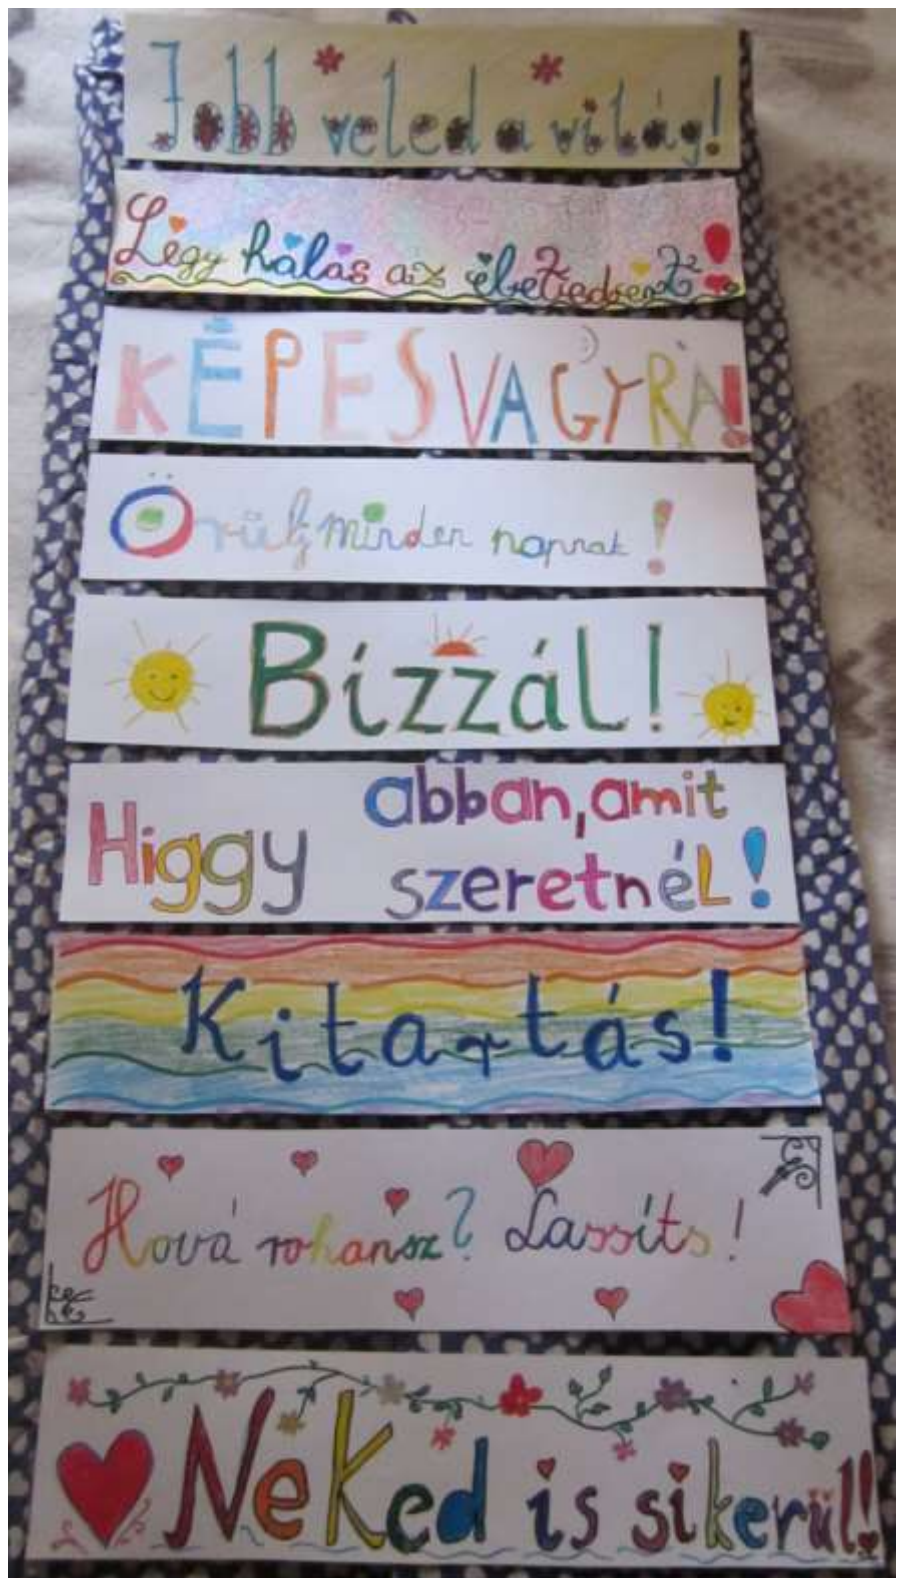 Jobb veled a világ!
Légy hálás az életedért!
KÉPES VAGY RÁ!
Örülj minden napnak!
Bízzál!
Higgy abban, amit
szeretnél!
Kitartás!
Hová rohansz? Lassíts!
Neked is sikerül!